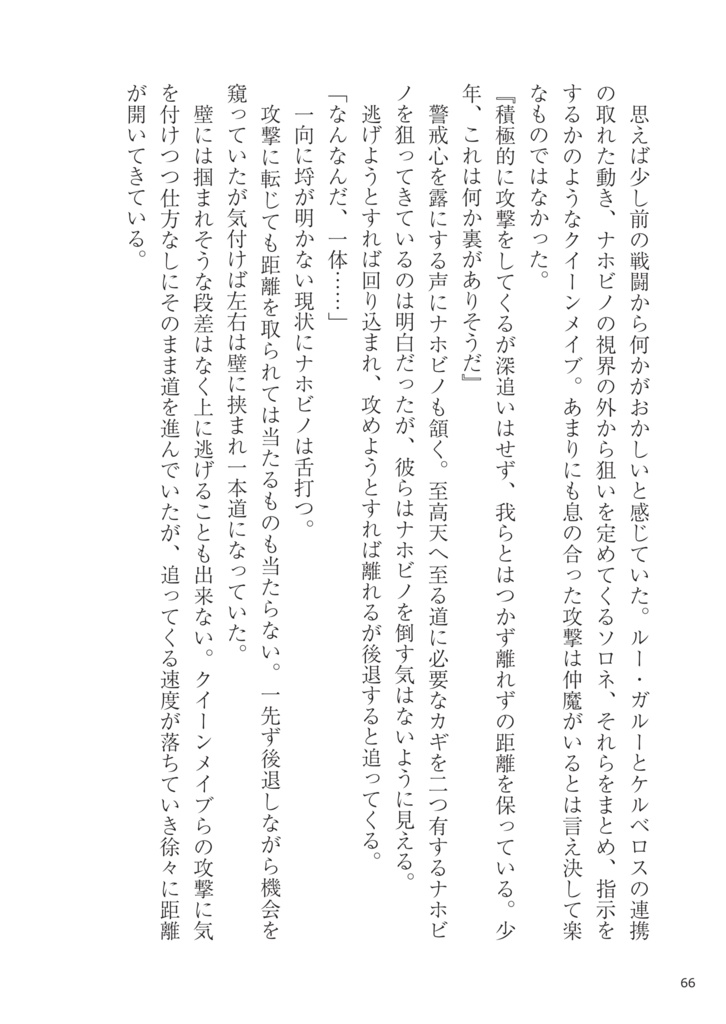 思えば少し前の戦闘から何かがおかしいと感じていた。ルー・ガルーとケルベロスの連携
の取れた動き、ナホビノの視界の外から狙いを定めてくるソロネ、それらをまとめ、指示を
するかのようなクイーンメイブ。あまりにも息の合った攻撃は仲魔がいるとは言え決して楽
なものではなかった。
『積極的に攻撃をしてくるが深追いはせず、我らとはつかず離れずの距離を保っている。少
年、これは何か裏がありそうだ』
　警戒心を露にする声にナホビノも頷く。至高天へ至る道に必要なカギを二つ有するナホビ
ノを狙ってきているのは明白だったが、彼らはナホビノを倒す気はないように見える。
　逃げようとすれば回り込まれ、攻めようとすれば離れるが後退すると追ってくる。
「なんなんだ、一体……」
　一向に埒が明かない現状にナホビノは舌打つ。
　攻撃に転じても距離を取られては当たるものも当たらない。一先ず後退しながら機会を
窺っていたが気付けば左右は壁に挟まれ一本道になっていた。
　壁には掴まれそうな段差はなく上に逃げることも出来ない。クイーンメイブらの攻撃に気
を付けつつ仕方なしにそのまま道を進んでいたが、追ってくる速度が落ちていき徐々に距離
が開いてきている。
66